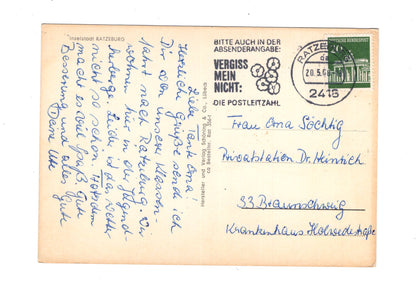 Inselstadt RATZEBURG
Liebe Tante Erna!
Herzliche Grüße sende ich
Dir von unserer Klassen-
fahrt nach Ratzeburg. Wir
wohnen hier in der Jugend-
herberge. Leider ist das Wetter
nicht so schön. Trotzdem
macht es viel Spaß. Gute
Besserung und alles Gute
Deine Ute
Hersteller und Verlag Schöning & Co., Lübeck
BITTE AUCH IN DER
ABSENDERANGABE:
VERGISS
MEIN
NICHT:
DIE POSTLEITZAHL
RATZEBURG
20.5.68
2418
DEUTSCHE BUNDESPOST
Frau Erna Söchtig
Privatstation Dr. Heinrich
33 Braunschweig
Krankenhaus Holwedestraße